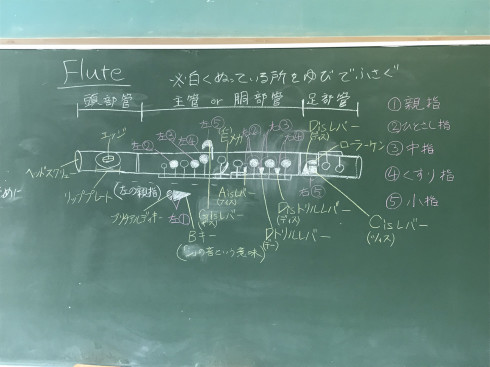 Flute
※白くぬっている所をゆびでふさぐ
頭部管
主管 or 胴部管
足部管
①親指
②ひとさし指
③中指
④くすり指
⑤小指
エッジ
左②
左③
左④
左⑤
右③
右④
Disレバー
(ディス)
ローラーケン
ヘッドスクリュー
リッププレート
(左の親指)
左①
Bキー
Gisレバー
Aisレバー
(アイス)
Disトリルレバー
(ディス)
Dトリルレバー
(デー)
右⑤
Cisレバー
(ツィス)